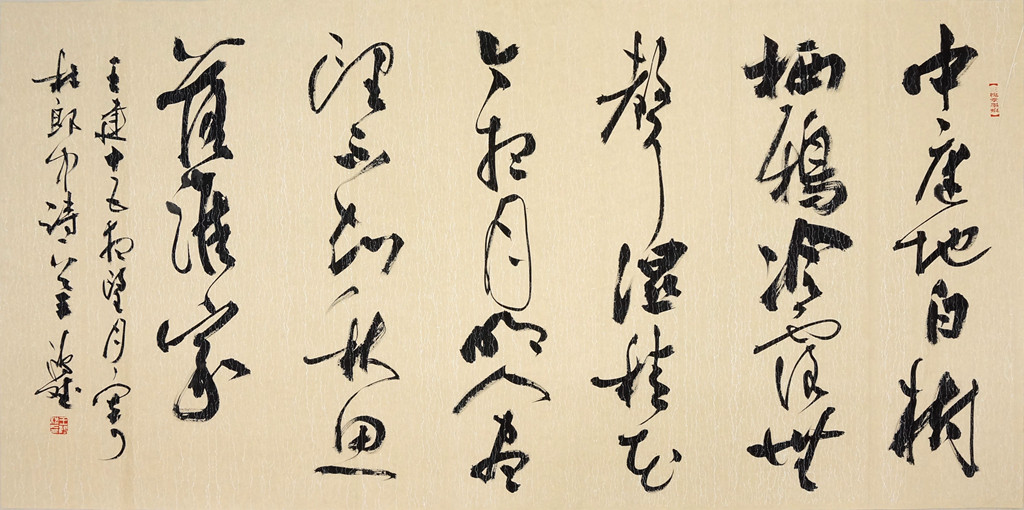 中庭地白樹
栖鴉冷露無
聲濕桂花
今夜月明人尽
望不知秋思
落誰家
王建十五夜望月寄
杜郎中詩